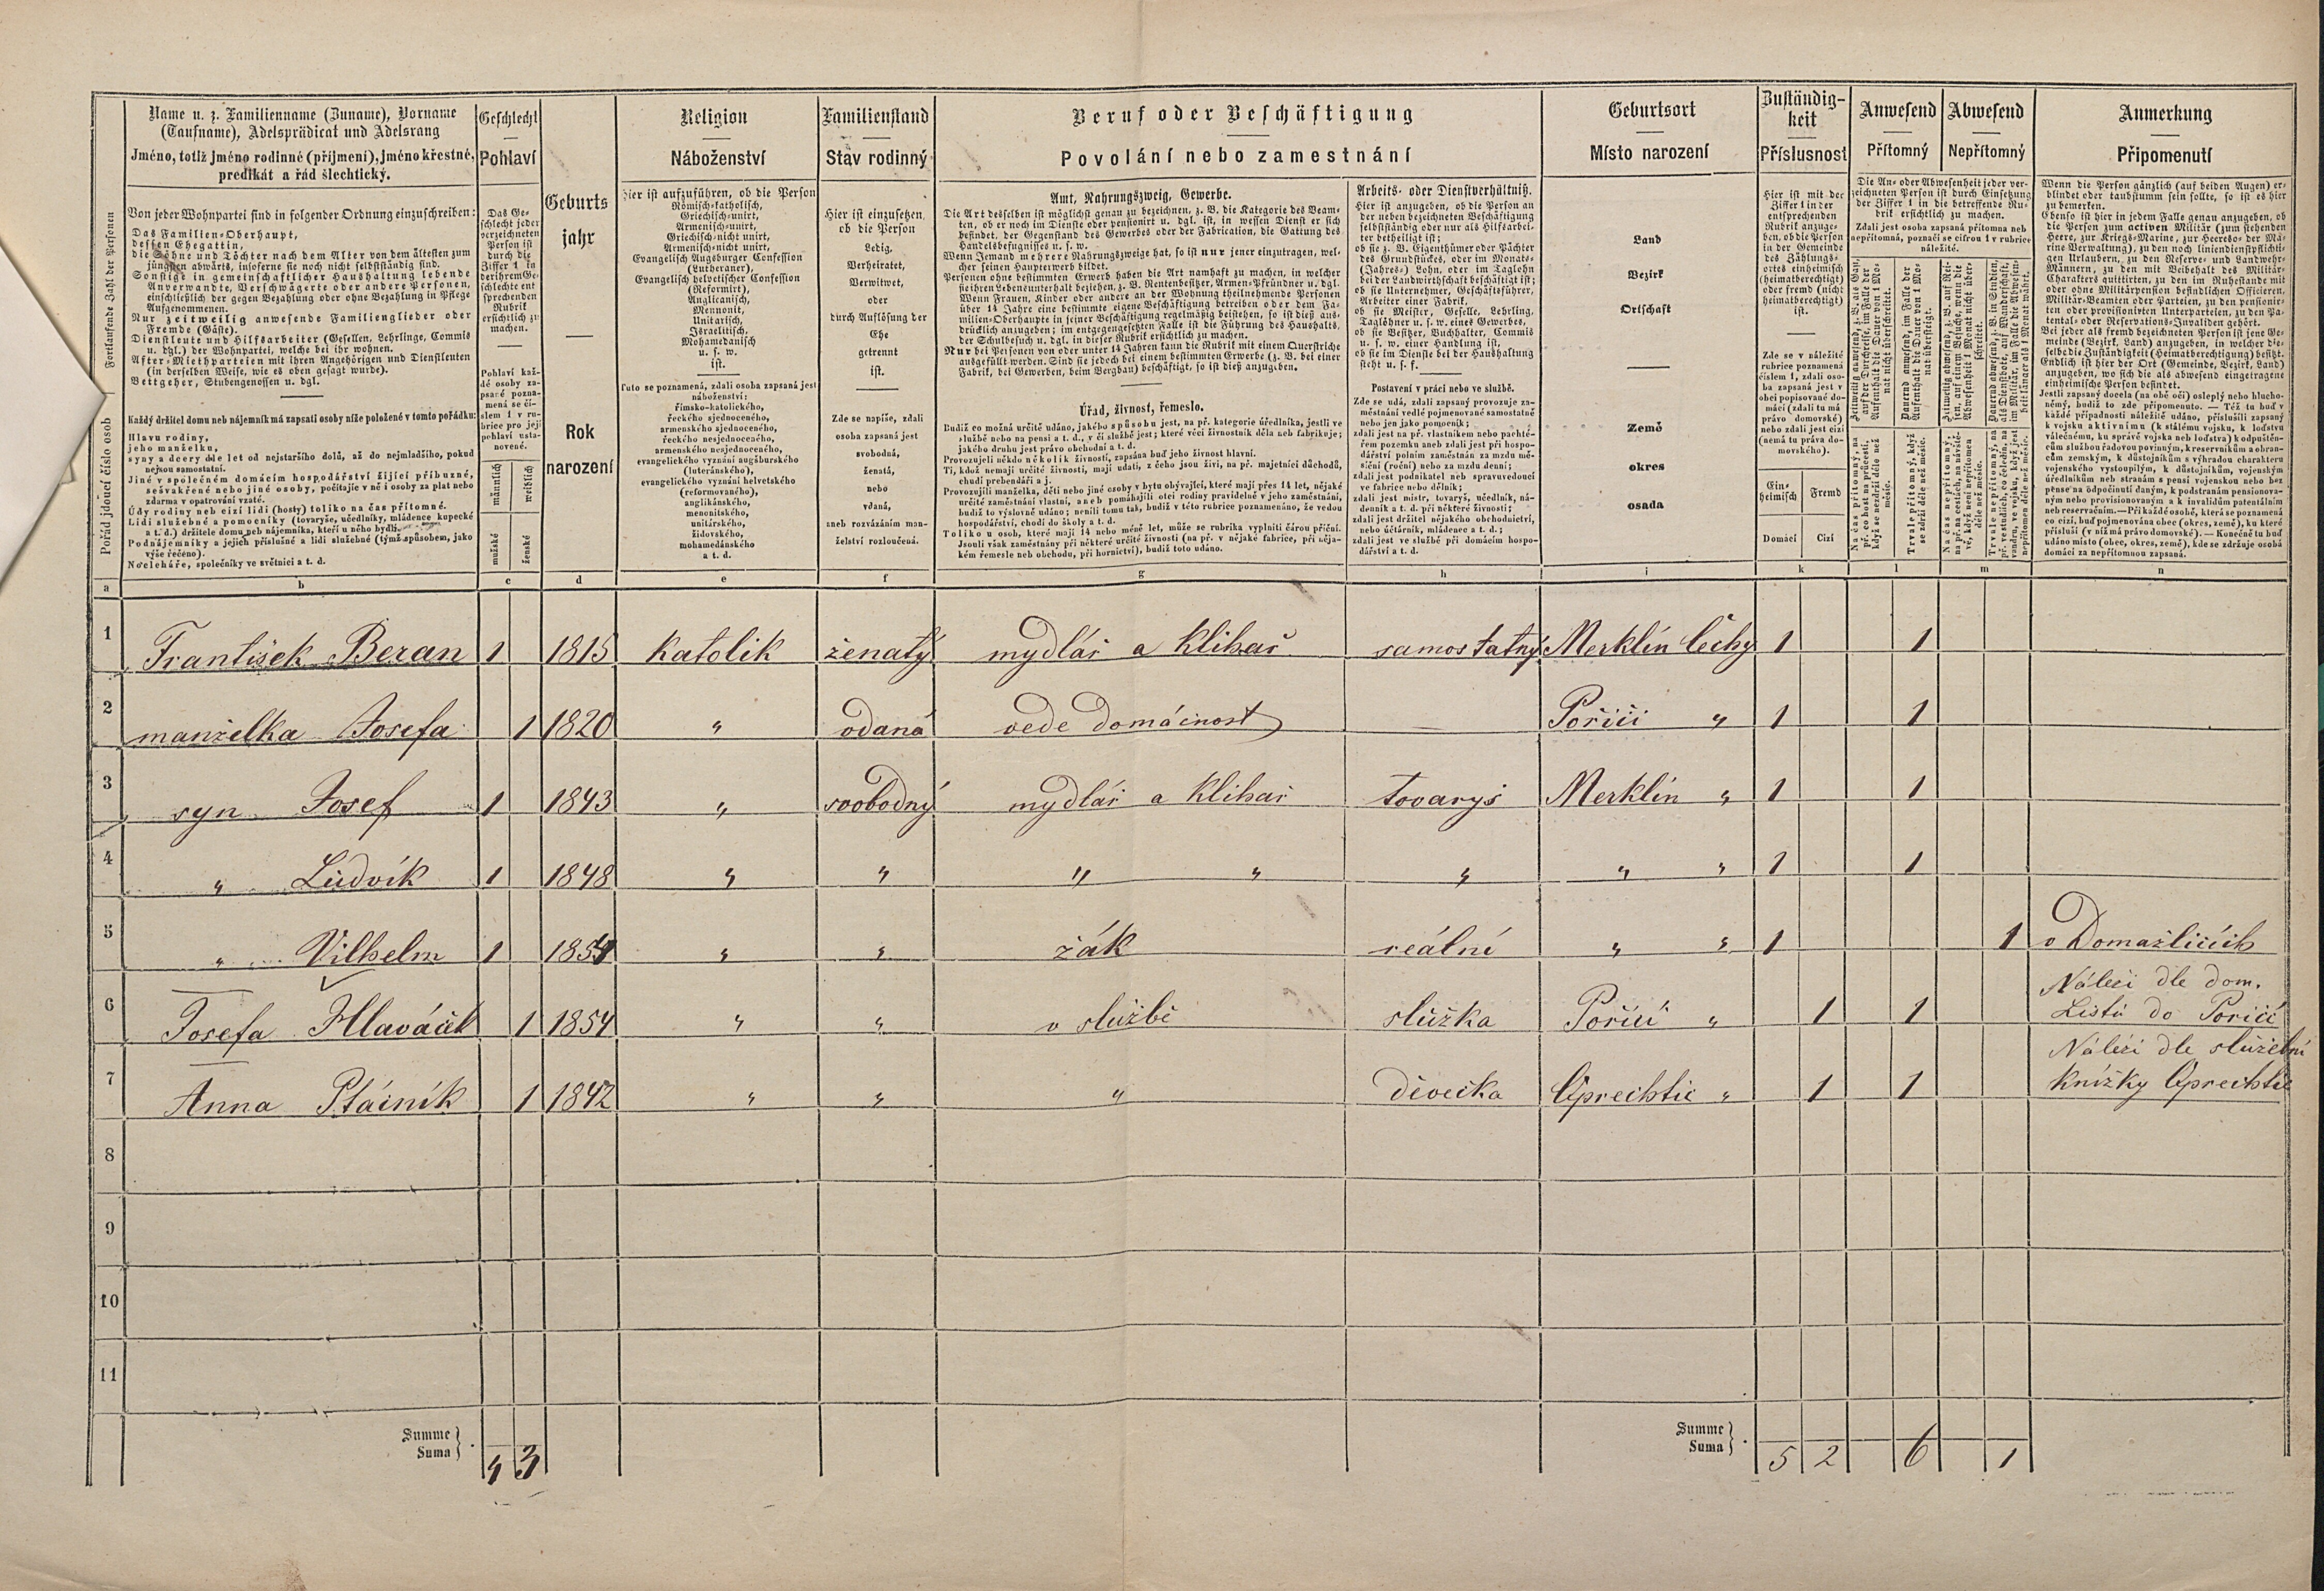 Name u. z. Familienname (Zuname), Vorname
(Taufname), Adelsprädicat und Adelsrang
Jméno, totiž jméno rodinné (příjmení), jméno křestné,
predikát a řád šlechtický.
Von jeder Wohnpartei sind in folgender Ordnung einzuschreiben:
Das Familien-Oberhaupt,
dessen Ehegattin,
die Söhne und Töchter nach dem Alter von dem ältesten zum
jüngsten abwärts, insoferne sie noch nicht selbstständig sind.
Sonstige in gemeinschaftlicher Haushaltung lebende
Anverwandte, Verschwägerte oder andere Personen,
einschließlich der gegen Bezahlung oder ohne Bezahlung in Pflege
Aufgenommenen.
Nur zeitweilig anwesende Familienglieder oder
Fremde (Gäste).
Dienstleute und Hilfsarbeiter (Gesellen, Lehrlinge, Commis
u. dgl.) der Wohnpartei, welche bei ihr wohnen.
After-Miethparteien mit ihren Angehörigen und Dienstleuten
(in derselben Weise, wie es oben gesagt wurde).
Bettgeher, Stubengenossen u. dgl.
Každý držitel domu neb nájemník má zapsati osoby níže položené v tomto pořádku:
Hlavu rodiny,
jeho manželku,
syny a dcery dle let od nejstaršího dolů, až do nejmladšího, pokud
nejsou samostatní.
Jiné v společném domácím hospodářství žijící příbuzné,
sešvakřené nebo jiné osoby, počítajíc v ně i osoby za plat nebo
zdarma v opatrování vzaté.
Údy rodiny neb cizí lidi (hosty) toliko na čas přítomné.
Lidi služebné a pomocníky (tovaryše, učedlníky, mládence kupecké
a t. d.) držitele domu neb nájemníka, kteří u něho bydlí.
Podnájemníky a jejich příslušné a lidi služebné (týmž spůsobem, jako
výše řečeno).
Nocleháře, společníky ve světnici a t. d.
Fortlaufende Zahl der Personen
Pořád jdoucí číslo osob
Geschlecht
Pohlaví
Das Ge-
schlecht jeder
verzeichneten
Person ist
durch die
Ziffer 1 in
der ihrem Ge-
schlechte ent
sprechenden
Rubrik
ersichtlich zu
machen.
Pohlaví kaž-
dé osoby za-
psané pozna-
mená se čí-
slem 1 v ru-
brice pro její
pohlaví usta-
novené.
männlich
weiblich
mužské
ženské
Geburts
jahr
Rok
narození
Religion
Náboženství
Hier ist aufzuführen, ob die Person
Römisch-katholisch,
Griechisch-unirt,
Armenisch-unirt,
Griechisch-nicht unirt,
Armenisch-nicht unirt,
Evangelisch Augsburger Confession
(Lutheraner),
Evangelisch helvetischer Confession
(Reformirt),
Anglicanisch,
Mennonit,
Unitarisch,
Israelitisch,
Mohamedanisch
u. s. w.
ist.
Tuto se poznamená, zdali osoba zapsaná jest
náboženství:
římsko-katolického,
řeckého sjednoceného,
armenského sjednoceného,
řeckého nesjednoceného,
armenského nesjednoceného,
evangelického vyznání augšburského
(luteránského),
evangelického vyznání helvetského
(reformovaného),
anglikánského,
menonitského,
unitárského,
židovského,
mohamedánského
a t. d.
Familienstand
Stav rodinný
Hier ist einzusetzen,
ob die Person
Ledig,
Verheiratet,
Verwitwet,
oder
durch Auflösung der
Ehe
getrennt
ist.
Zde se napíše, zdali
osoba zapsaná jest
svobodná,
ženatá,
nebo
vdaná,
aneb rozvázáním man-
želství rozloučená.
Beruf oder Beschäftigung
Povolání nebo zamestnání
Amt, Nahrungszweig, Gewerbe.
Die Art desselben ist möglichst genau zu bezeichnen, z. B. die Kategorie des Beam-
ten, ob er noch im Dienste oder pensionirt u. dgl. ist, in wessen Dienst er sich
befindet, der Gegenstand des Gewerbes oder der Fabrication, die Gattung des
Handelsbefugnisses u. s. w.
Wenn Jemand mehrere Nahrungszweige hat, so ist nur jener einzutragen, wel-
cher seinen Haupterwerb bildet.
Personen ohne bestimmten Erwerb haben die Art namhaft zu machen, in welcher
sie ihren Lebensunterhalt beziehen, z. B. Rentenbesitzer, Armen-Pfründner u. dgl.
Wenn Frauen, Kinder oder andere an der Wohnung theilnehmende Personen
über 14 Jahre eine bestimmte eigene Beschäftigung betreiben oder dem Fa-
milien-Oberhaupte in seiner Beschäftigung regelmäßig beistehen, so ist dieß aus-
drücklich anzugeben; im entgegengesetzten Falle ist die Führung des Haushalts,
der Schulbesuch u. dgl. in dieser Rubrik ersichtlich zu machen.
Nur bei Personen von oder unter 14 Jahren kann die Rubrik mit einem Querstriche
ausgefüllt werden. Sind sie jedoch bei einem bestimmten Erwerbe (z. B. bei einer
Fabrik, bei Gewerben, beim Bergbau) beschäftigt, so ist dieß anzugeben.
Úřad, živnost, řemeslo.
Budiž co možná určitě udáno, jakého spůsobu jest, na př. kategorie úředlníka, jestli ve
službě nebo na pensi a t. d., v čí službě jest; které věci živnostník dělá neb fabrikuje;
jakého druhu jest právo obchodní a t. d.
Provozujeli někdo několik živností, zapsána buď jeho živnost hlavní.
Ti, kdož nemají určité živnosti, mají udati, z čeho jsou živi, na př. majetníci důchodů,
chudí prebendáři a j.
Provozujíli manželka, děti nebo jiné osoby v bytu obývající, které mají přes 14 let, nějaké
určité zaměstnání vlastní, aneb pomáhajíli otci rodiny pravidelně v jeho zaměstnání,
budiž to výslovně udáno; neníli tomu tak, budiž v této rubrice poznamenáno, že vedou
hospodářství, chodí do školy a t. d.
Toliko u osob, které mají 14 nebo méně let, může se rubrika vyplniti čárou příční.
Jsouli však zaměstnány při některé určité živnosti (na př. v nějaké fabrice, při něja-
kém řemesle neb obchodu, při hornictví), budiž toto udáno.
Arbeits- oder Dienstverhältniß.
Hier ist anzugeben, ob die Person an
der neben bezeichneten Beschäftigung
selbstständig oder nur als Hilfsarbei-
ter betheiligt ist;
ob sie z. B. Eigenthümer oder Pächter
des Grundstückes, oder im Monats-
(Jahres-) Lohn, oder im Taglohn
bei der Landwirthschaft beschäftigt ist;
ob sie Unternehmer, Geschäftsführer,
Arbeiter einer Fabrik,
ob sie Meister, Geselle, Lehrling,
Taglöhner u. s. w. eines Gewerbes,
ob sie Besitzer, Buchhalter, Commis
u. s. w. einer Handlung ist,
ob sie im Dienste bei der Haushaltung
steht u. s. f.
Postavení v práci nebo ve službě.
Zde se udá, zdali zapsaný provozuje za-
městnání vedlé pojmenované samostatně
nebo jen jako pomocník;
zdali jest na př. vlastníkem nebo pachté-
řem pozemku aneb zdali jest při hospo-
dářství polním zaměstnán za mzdu mě-
síční (roční) nebo za mzdu denní;
zdali jest podnikatel neb spravovedoucí
ve fabrice nebo dělník;
zdali jest mistr, tovaryš, učedlník, ná-
denník a t. d. při některé živnosti;
zdali jest držitel nějakého obchodnictví,
nebo účtárník, mládenec a t. d.;
zdali jest ve službě při domácím hospo-
dářství a t. d.
Geburtsort
Místo narození
Land
Bezirk
Ortschaft
Země
okres
osada
Zuständig-
keit
Příslusnost
Hier ist mit der
Ziffer 1 in der
entsprechenden
Rubrik anzuge-
ben, ob die Person
in der Gemeinde
des Zählungs-
ortes einheimisch
(heimatberechtigt)
oder fremd (nicht
heimatberechtigt)
ist.
Zde se v náležité
rubrice poznamená
číslem 1, zdali oso-
ba zapsaná jest v
obci popisované do-
mácí (zdali tu má
právo domovské)
nebo zdali jest cizí
(nemá tu práva do-
movského).
Ein-
heimisch
Fremd
Domácí
Cizí
Anwesend
Přítomný
Abwesend
Nepřítomný
Die An- oder Abwesenheit jeder ver-
zeichneten Person ist durch Einsetzung
der Ziffer 1 in die betreffende Ru-
brik ersichtlich zu machen.
Zdali jest osoba zapsaná přítomna neb
nepřítomná, poznačí se cifrou 1 v rubrice
náležité.
Anmerkung
Připomenutí
Wenn die Person gänzlich (auf beiden Augen) er-
blindet oder taubstumm sein sollte, so ist es hier
zu bemerken.
a b c d e f g h i k l m n
1 František Beran 1 1815 Katolik ženatý mydlář a Klihař samostatný Merklín Čechy 1 1
2 manželka Josefa 1 1820 " vdaná vede domácnost — Poříčí " 1 1
3 syn Josef 1 1843 " svobodný mydlář a Klihař tovaryš Merklín " 1 1
4 " Ludvík 1 1848 " " " " " " " 1 1
5 " Vilhelm 1 1854 " " žák reální " " 1 1 v Domažlicích
6 Josefa Hlaváček 1 1854 " " v službě služka Poříčí " 1 1 Náleži dle dom.
Listu do Poříčí
7 Anna Ptáčník 1 1842 " " " děvečka Oprechtic " 1 1 Náleži dle služební
knížky Oprechtic
8
9
10
11
Summe
Suma
4 3
Summe
Suma
5 2 6 1